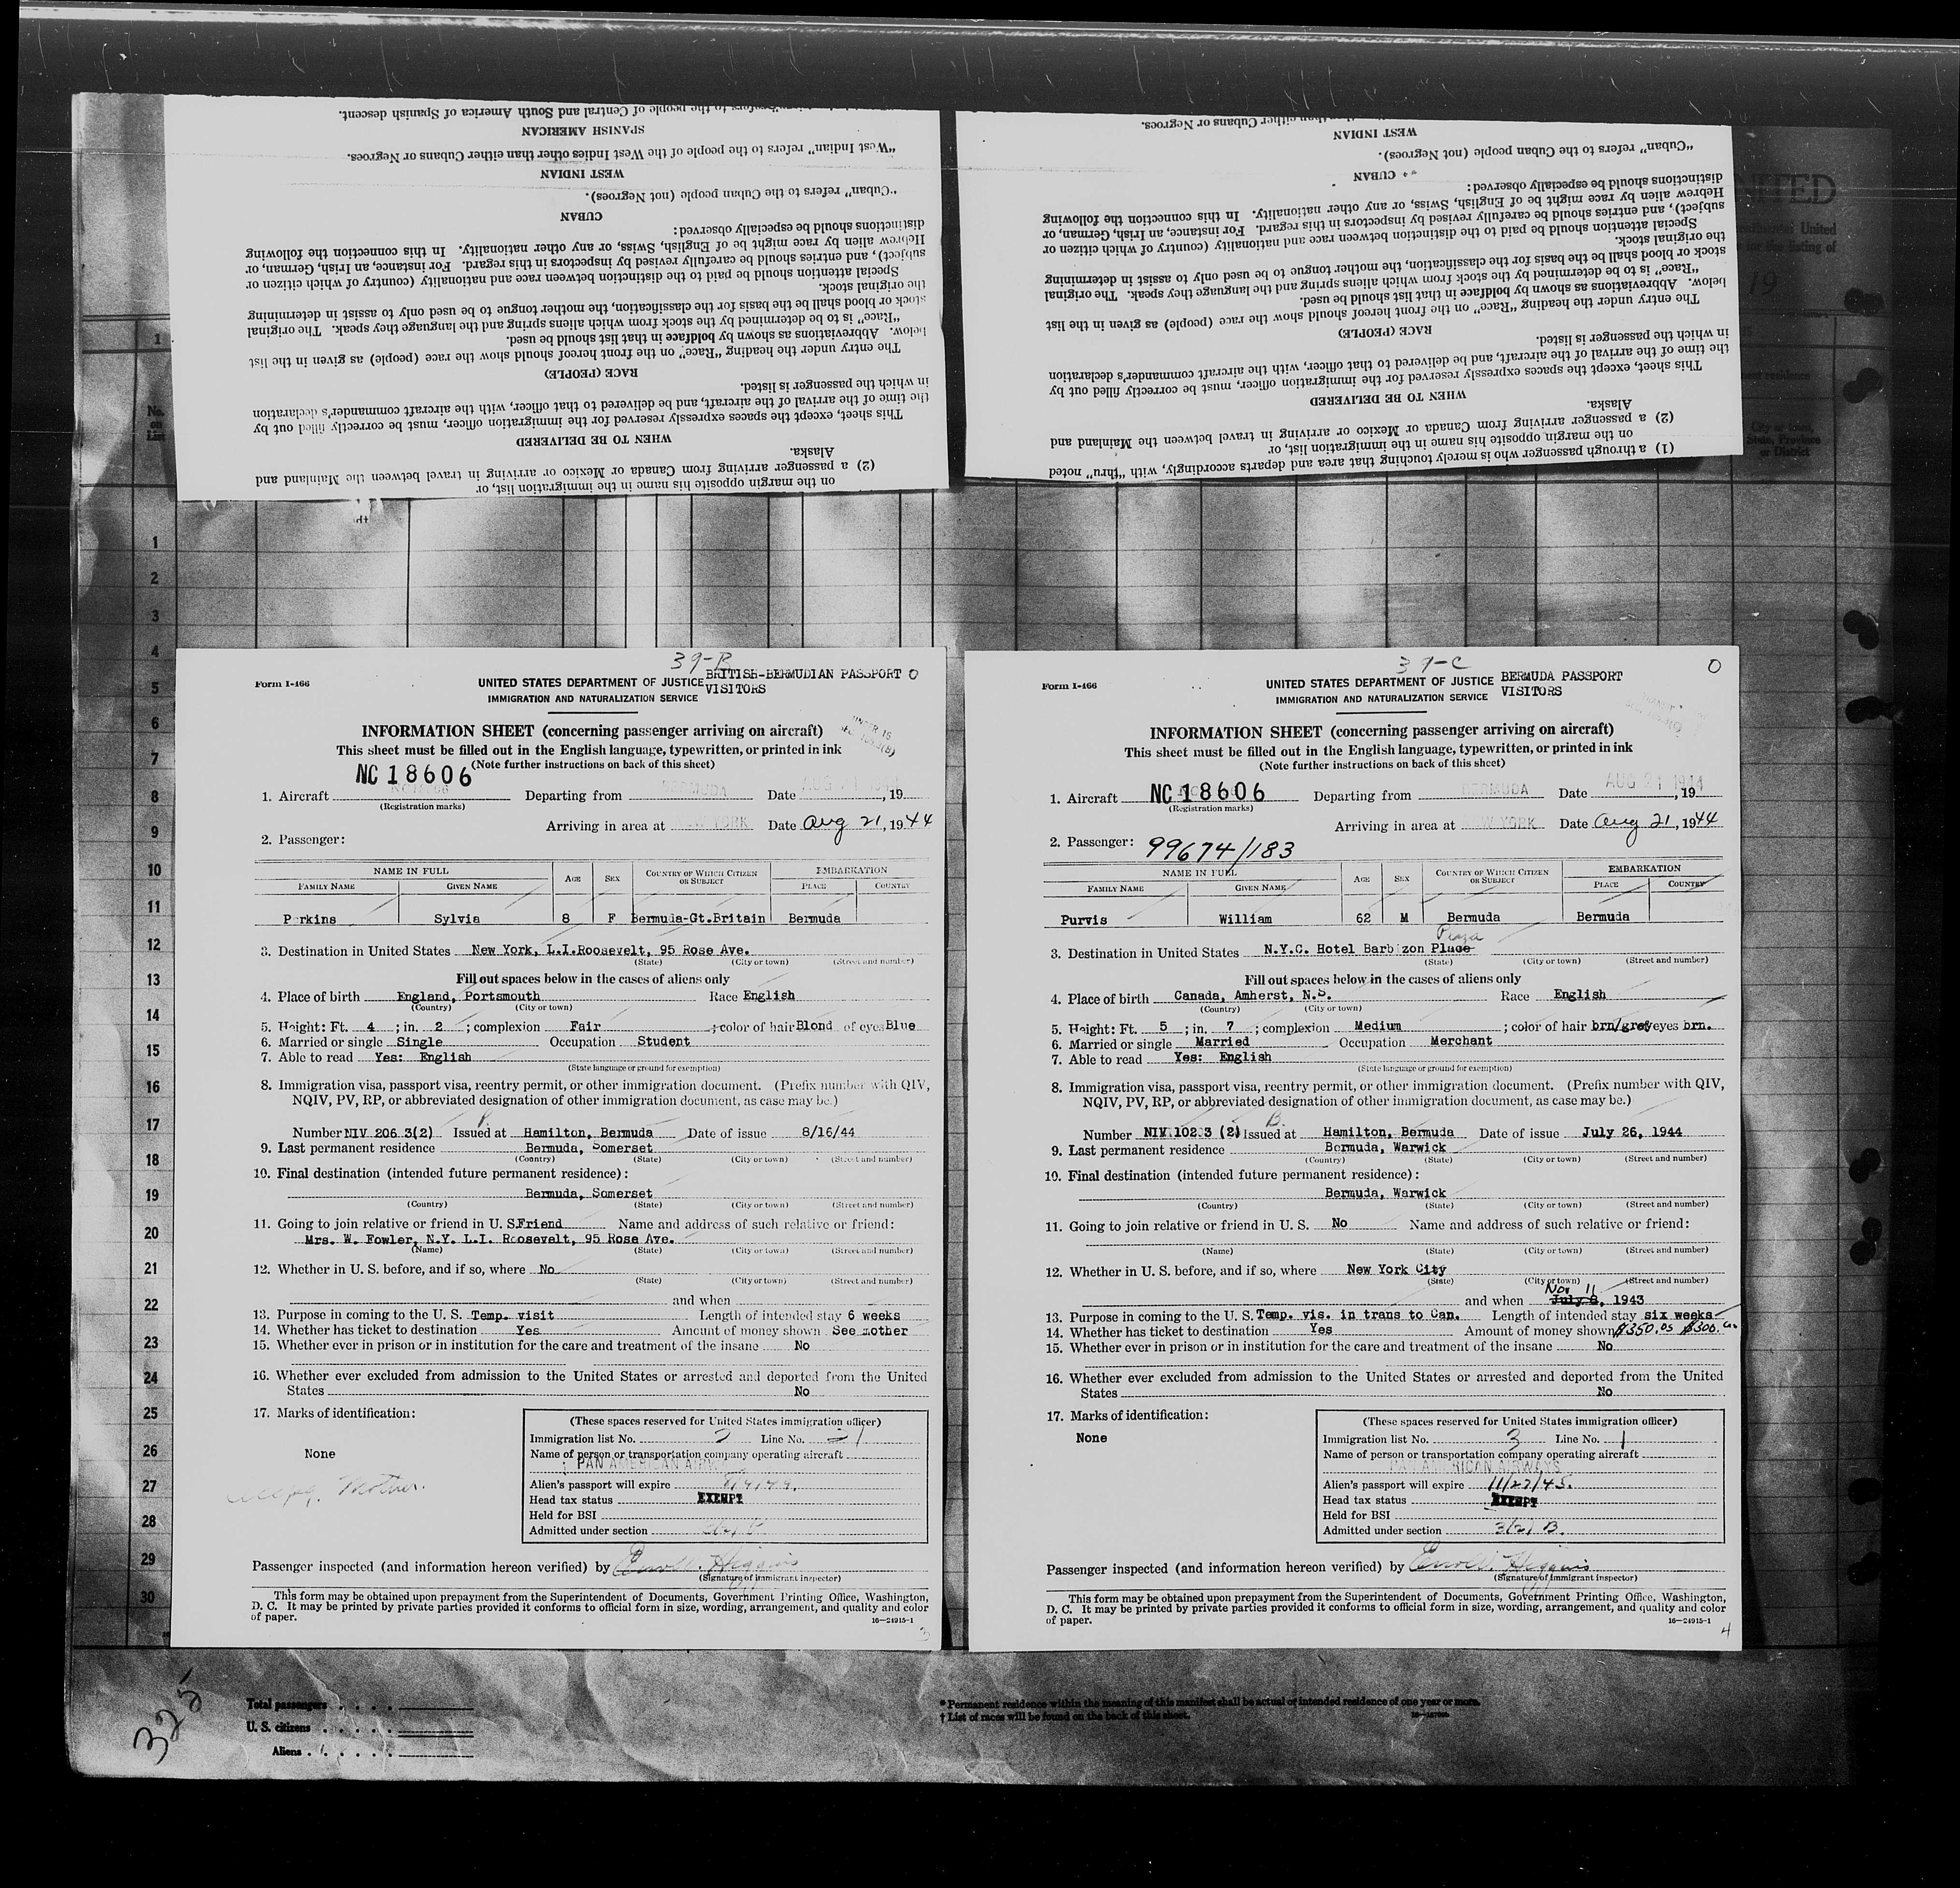 refers to the people of Central and South America of Spanish descent.
SPANISH AMERICAN
"West Indian" refers to the people of the West Indies other than either Cubans or Negroes.
WEST INDIAN
"Cuban" refers to the Cuban people (not Negroes).
CUBAN
distinctions should be especially observed:
Hebrew alien by race might be of English, Swiss, or any other nationality. In this connection the following
subject), and entries should be carefully revised by inspectors in this regard. For instance, an Irish, German, or
Special attention should be paid to the distinction between race and nationality (country of which citizen or
the original stock.
stock or blood shall be the basis for the classification, the mother tongue to be used only to assist in determining
"Race" is to be determined by the stock from which aliens spring and the language they speak. The original
below. Abbreviations as shown by boldface in that list should be used.
The entry under the heading "Race" on the front hereof should show the race (people) as given in the list
RACE (PEOPLE)
in which the passenger is listed.
the time of the arrival of the aircraft, and be delivered to that officer, with the aircraft commander's declaration
This sheet, except the spaces expressly reserved for the immigration officer, must be correctly filled out by
WHEN TO BE DELIVERED
Alaska.
(2) a passenger arriving from Canada or Mexico or arriving in travel between the Mainland and
on the margin opposite his name in the immigration list, or
than either Cubans or Negroes.
WEST INDIAN
"Cuban" refers to the Cuban people (not Negroes).
CUBAN
distinctions should be especially observed:
Hebrew alien by race might be of English, Swiss, or any other nationality. In this connection the following
subject), and entries should be carefully revised by inspectors in this regard. For instance, an Irish, German, or
Special attention should be paid to the distinction between race and nationality (country of which citizen or
the original stock.
stock or blood shall be the basis for the classification, the mother tongue to be used only to assist in determining
"Race" is to be determined by the stock from which aliens spring and the language they speak. The original
below. Abbreviations as shown by boldface in that list should be used.
The entry under the heading "Race" on the front hereof should show the race (people) as given in the list
RACE (PEOPLE)
in which the passenger is listed.
the time of the arrival of the aircraft, and be delivered to that officer, with the aircraft commander's declaration
This sheet, except the spaces expressly reserved for the immigration officer, must be correctly filled out by
WHEN TO BE DELIVERED
Alaska.
(2) a passenger arriving from Canada or Mexico or arriving in travel between the Mainland and
on the margin opposite his name in the immigration list, or
(1) a through passenger who is merely touching that area and departs accordingly, with "thru" noted
United
listing of
19
City or town,
State, Province
or District
1
No.
on
List
1
2
3
4
5
6
7
8
9
10
11
12
13
14
15
16
17
18
19
20
21
22
23
24
25
26
27
28
29
30
39-B
Form I-466
UNITED STATES DEPARTMENT OF JUSTICE BRITISH-BERMUDIAN PASSPORT 0
IMMIGRATION AND NATURALIZATION SERVICE VISITORS
INFORMATION SHEET (concerning passenger arriving on aircraft)
UNDER 16
This sheet must be filled out in the English language, typewritten, or printed in ink
(Note further instructions on back of this sheet)
NC 18606
1. Aircraft Departing from BERMUDA Date AUG 21, 19
(Registration marks)
Arriving in area at NEW YORK Date Aug 21, 1944
2. Passenger:
NAME IN FULL AGE SEX COUNTRY OF WHICH CITIZEN OR SUBJECT EMBARKATION
FAMILY NAME GIVEN NAME PLACE COUNTRY
P rkins Sylvia 8 F Bermuda-Gt.Britain Bermuda
3. Destination in United States New York, L.I.Roosevelt, 95 Rose Ave.
(State) (City or town) (Street and number)
Fill out spaces below in the cases of aliens only
4. Place of birth England, Portsmouth Race English
(Country) (City or town)
5. Height: Ft. 4 ; in. 2 ; complexion Fair ; color of hair Blond of eyes Blue
6. Married or single Single Occupation Student
7. Able to read Yes: English
(State language or ground for exemption)
8. Immigration visa, passport visa, reentry permit, or other immigration document. (Prefix number with QIV,
NQIV, PV, RP, or abbreviated designation of other immigration document, as case may be.)
Number NIV 206 3(2) Issued at Hamilton, Bermuda Date of issue 8/16/44
9. Last permanent residence Bermuda, Somerset
(Country) (State) (City or town) (Street and number)
10. Final destination (intended future permanent residence):
Bermuda, Somerset
(Country) (State) (City or town) (Street and number)
11. Going to join relative or friend in U. S. Friend Name and address of such relative or friend:
Mrs. W. Fowler, N.Y. L.I. Roosevelt, 95 Rose Ave.
(Name) (State) (City or town) (Street and number)
12. Whether in U. S. before, and if so, where No
(State) (City or town) (Street and number)
and when
13. Purpose in coming to the U. S. Temp. visit Length of intended stay 6 weeks
14. Whether has ticket to destination Yes Amount of money shown See mother
15. Whether ever in prison or in institution for the care and treatment of the insane No
16. Whether ever excluded from admission to the United States or arrested and deported from the United
States No
17. Marks of identification:
None
Mother.
(These spaces reserved for United States immigration officer)
Immigration list No. 2 Line No.
Name of person or transportation company operating aircraft
PAN AMERICAN AIRW
Alien's passport will expire
Head tax status EXEMPT
Held for BSI
Admitted under section
Passenger inspected (and information hereon verified) by Higgins
(Signature of immigrant inspector)
This form may be obtained upon prepayment from the Superintendent of Documents, Government Printing Office, Washington,
D. C. It may be printed by private parties provided it conforms to official form in size, wording, arrangement, and quality and color
of paper. 16—24915-1
3
39-C
0
Form I-466
UNITED STATES DEPARTMENT OF JUSTICE BERMUDA PASSPORT
IMMIGRATION AND NATURALIZATION SERVICE VISITORS
INFORMATION SHEET (concerning passenger arriving on aircraft)
This sheet must be filled out in the English language, typewritten, or printed in ink
(Note further instructions on back of this sheet)
1. Aircraft NC 18606 Departing from BERMUDA Date AUG 21 1944, 19
(Registration marks)
Arriving in area at NEW YORK Date Aug 21, 1944
2. Passenger: 99674/183
NAME IN FULL AGE SEX COUNTRY OF WHICH CITIZEN OR SUBJECT EMBARKATION
FAMILY NAME GIVEN NAME PLACE COUNTRY
Purvis William 62 M Bermuda Bermuda
Plaza
3. Destination in United States N.Y.C. Hotel Barbizon Place
(State) (City or town) (Street and number)
Fill out spaces below in the cases of aliens only
4. Place of birth Canada, Amherst, N.S. Race English
(Country) (City or town)
5. Height: Ft. 5 ; in. 7 ; complexion Medium ; color of hair brn/grey eyes brn.
6. Married or single Married Occupation Merchant
7. Able to read Yes: English
(State language or ground for exemption)
8. Immigration visa, passport visa, reentry permit, or other immigration document. (Prefix number with QIV,
NQIV, PV, RP, or abbreviated designation of other immigration document, as case may be.)
B.
Number NIV 102 3 (2) Issued at Hamilton, Bermuda Date of issue July 26, 1944
9. Last permanent residence Bermuda, Warwick
(Country) (State) (City or town) (Street and number)
10. Final destination (intended future permanent residence):
Bermuda, Warwick
(Country) (State) (City or town) (Street and number)
11. Going to join relative or friend in U. S. No Name and address of such relative or friend:
(Name) (State) (City or town) (Street and number)
12. Whether in U. S. before, and if so, where New York City
(State) (City or town) (Street and number)
Nov 11
and when July 8, 1943
13. Purpose in coming to the U. S. Temp. vis. in trans to Can. Length of intended stay six weeks
14. Whether has ticket to destination Yes Amount of money shown $350.
15. Whether ever in prison or in institution for the care and treatment of the insane No
16. Whether ever excluded from admission to the United States or arrested and deported from the United
States No
17. Marks of identification:
None
(These spaces reserved for United States immigration officer)
Immigration list No. 3 Line No. 1
Name of person or transportation company operating aircraft
PAN AMERICAN AIRWAYS
Alien's passport will expire 11/27/45.
Head tax status EXEMPT
Held for BSI
Admitted under section 3(2) B.
Passenger inspected (and information hereon verified) by Higgins
(Signature of immigrant inspector)
This form may be obtained upon prepayment from the Superintendent of Documents, Government Printing Office, Washington,
D. C. It may be printed by private parties provided it conforms to official form in size, wording, arrangement, and quality and color
of paper. 16—24915-1
4
325
Total passengers
U. S. citizens
Aliens
* Permanent residence within the meaning of this manifest shall be actual or intended residence of one year or more.
† List of races will be found on the back of this sheet.